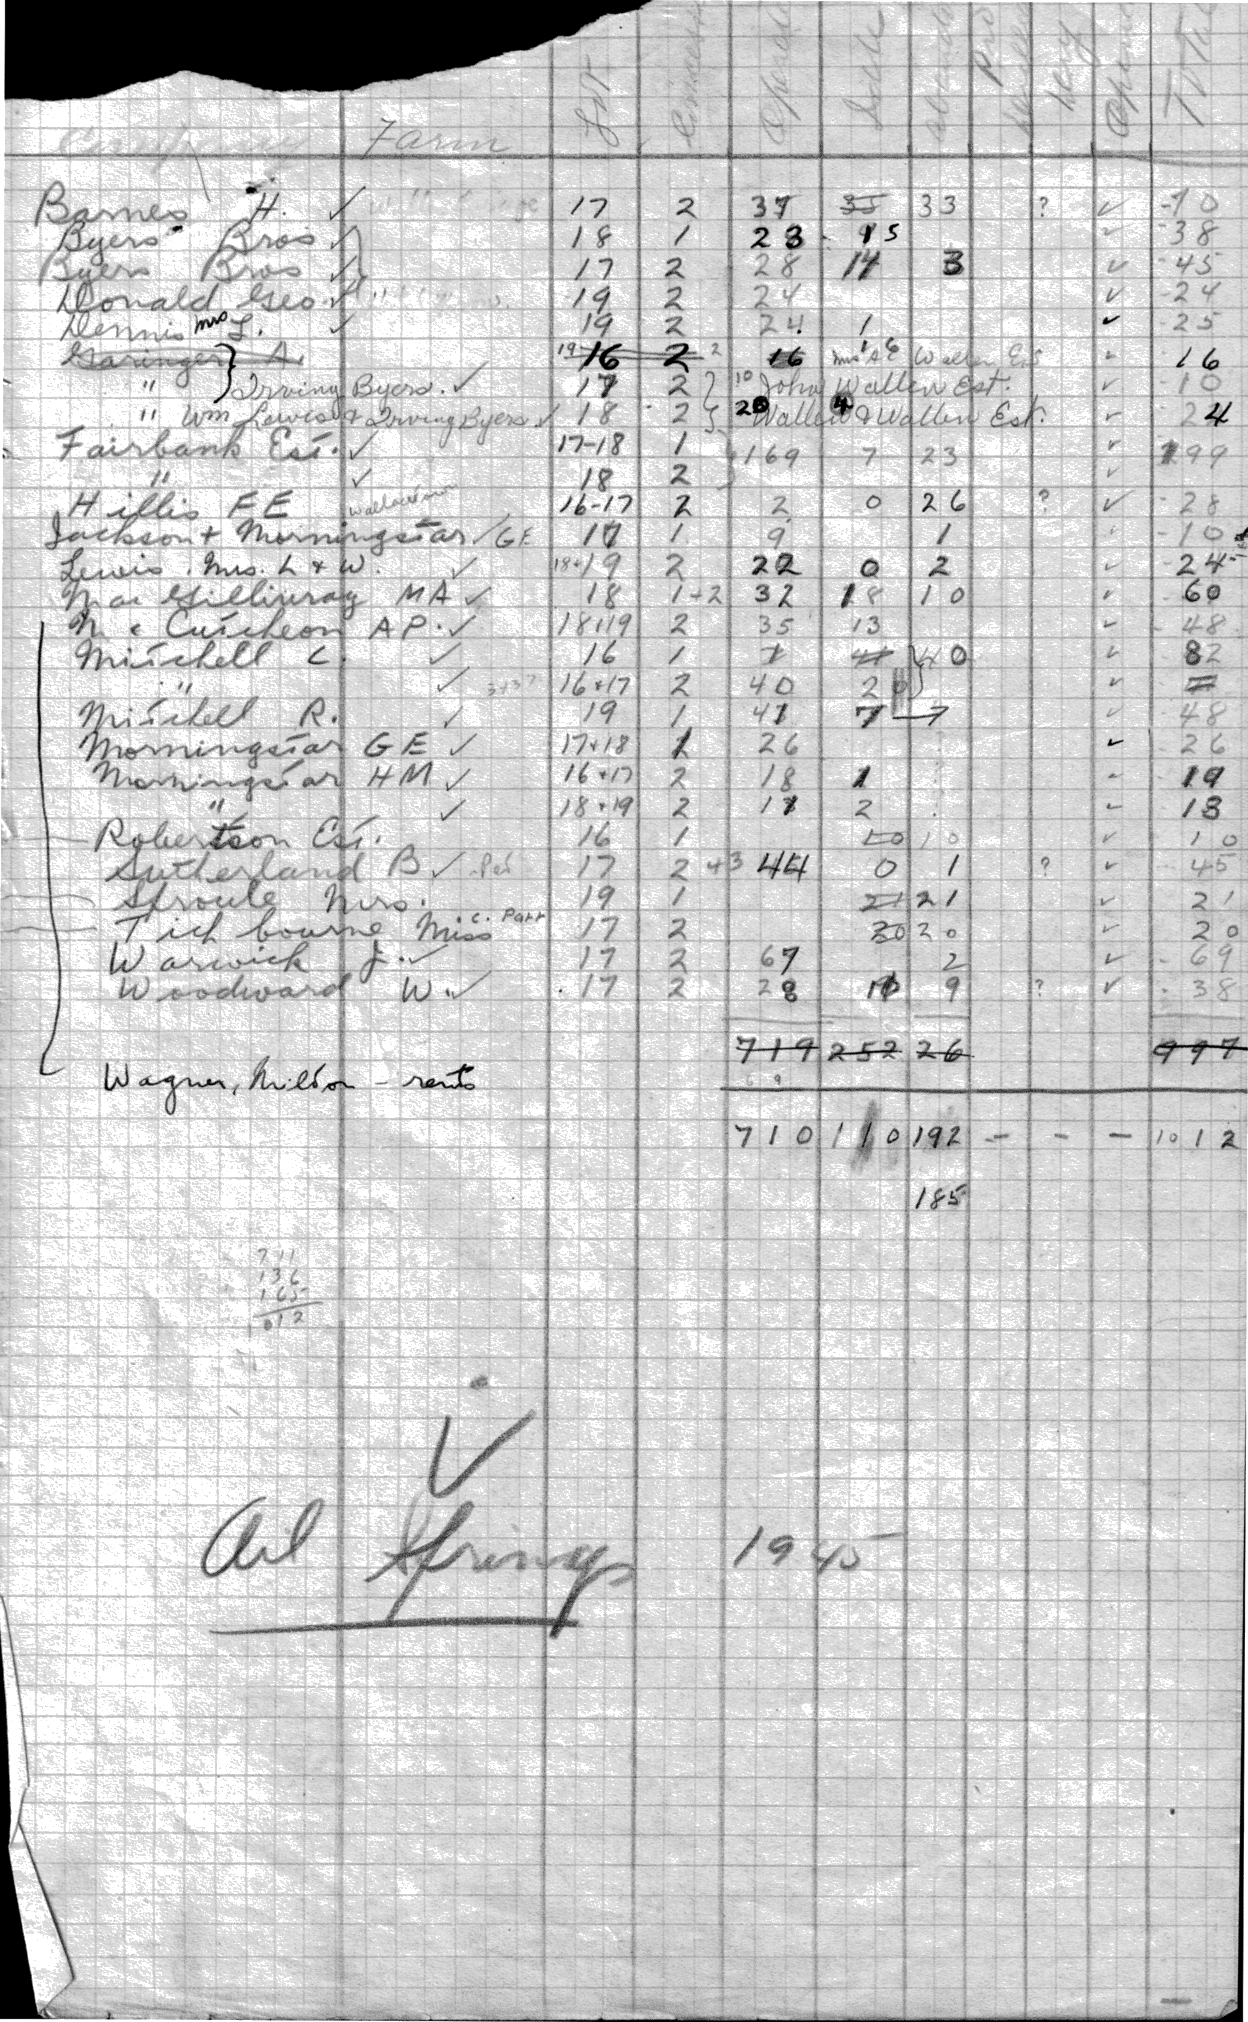 Company Farm Lot Concess Operat Idle Abandon Total
Barnes H. ✓ 17 2 37 35 33 ? ✓ 70
Byers Bros ✓ 18 1 23 15 ✓ 38
Byers Bros ✓ 17 2 28 14 3 ✓ 45
Donald Geo ✓ 19 2 24 ✓ 24
Dennis Mrs L. ✓ 19 2 24 1 ✓ 25
Garinger A. 19 16 2 2 16 Mrs A E Wallen Est ✓ 16
" Irving Byers. ✓ 17 2 10 John Wallen Est. ✓ 10
" Wm Lewis + Irving Byers ✓ 18 2 20 4 Wallen & Wallen Est. ✓ 24
Fairbank Est. ✓ 17-18 1 169 7 23 ✓ 199
" ✓ 18 2 ✓
Hillis FE 16-17 2 2 0 26 ? ✓ 28
Jackson + Morningstar ✓ GE 17 1 9 1 10
Lewis. Mrs. L & W. ✓ 18+19 2 22 0 2 ✓ 24
Mac Gillivray MA ✓ 18 1+2 32 18 10 ✓ 60
Mc Cutcheon AP. ✓ 18+19 2 35 13 ✓ 48
Mitchell C. ✓ 16 1 1 41 40 ✓ 82
" ✓ 16+17 2 40 2 ✓
Mitchell R. ✓ 19 1 41 7 7 ✓ 48
Morningstar GE ✓ 17+18 1 26 ✓ 26
Morningstar HM ✓ 16+17 2 18 1 ✓ 19
" ✓ 18+19 2 11 2 ✓ 13
Robertson Est. 16 1 10 10 ✓ 10
Sutherland B ✓ 17 2+3 44 0 1 ? ✓ 45
Sproule Mrs. 19 1 21 21 ✓ 21
Tichbourne Miss C. Part 17 2 20 20 ✓ 20
Warwick J. ✓ 17 2 67 2 ✓ 69
Woodward W. ✓ 17 2 28 10 9 ? ✓ 38
719 252 26 997
Wagner, Milton - rents
710 110 192 - - - 1012
185
711
136
165
1012
✓
Oil Springs 1945